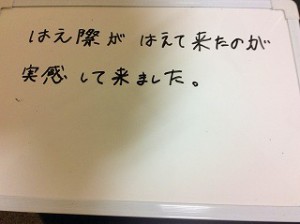 はえ際が はえて来たのが
実感して来ました。